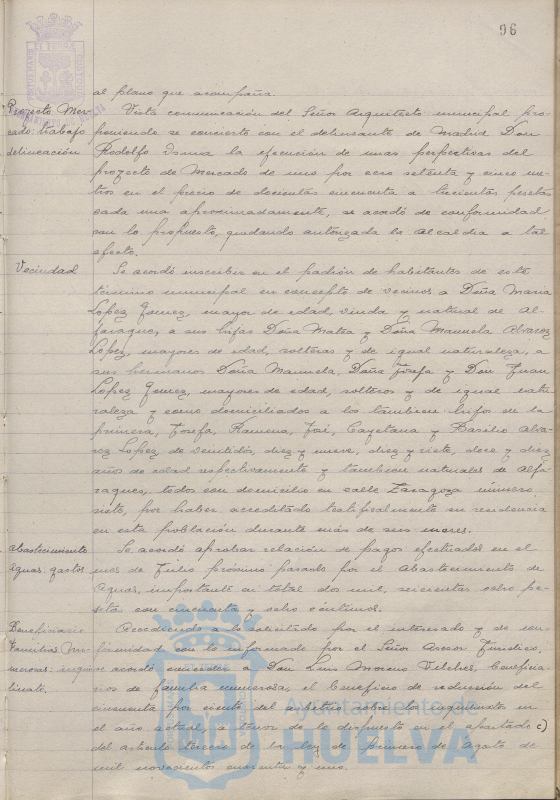 96
al plano que acompaña.
Proyecto Mer-
cado: trabajo
delineación
Vista comunicación del Señor Arquitecto municipal pro-
poniendo se concierte con el delineante de Madrid Don
Rodolfo la ejecución de unas perspectivas del
proyecto de Mercado de uno por cero setenta y cinco me-
tros en el precio de doscientas cincuenta a trescientas pesetas
cada una aproximadamente, se acordó de conformidad
con lo propuesto, quedando autorizada la Alcaldía a tal
efecto.
Vecindad
Se acordó inscribir en el padrón de habitantes de este
término municipal en concepto de vecinos a Doña María
Lopez Gomez, mayor de edad, viuda y natural de Al-
faraque, a sus hijas Doña Matea y Doña Manuela Alvarez
Lopez, mayores de edad, solteras y de igual naturaleza, a
sus hermanos Doña Manuela, Doña Josefa y Don Juan
Lopez Gomez, mayores de edad, solteros y de igual natu-
raleza y como domiciliados a los tambien hijos de la
primera, Josefa, Ramona, José, Cayetana y Basilio Alva-
rez Lopez, de veintidós, diez y nueve, diez y siete, doce y diez
años de edad respectivamente y tambien naturales de Alfa-
raques, todos con domicilio en calle Zaragoza número
siete, por haber acreditado testificalmente su residencia
en esta población durante más de seis meses.
Abastecimiento
aguas. gastos
Se acordó aprobar relación de pagos efectuados en el
mes de Julio próximo pasado por el Abastecimiento de
Aguas, importante en total dos mil, seiscientas ocho pe-
setas con cincuenta y ocho céntimos.
Beneficiario
Familias Nu-
merosas: inqui-
linato.
Accediendo a lo solicitado por el interesado y de con-
formidad con lo informado por el Señor Asesor Jurídico,
se acordó conceder a Don Luis Moreno Vilches, beneficia-
rio de familia numerosa, el beneficio de reducción del
cincuenta por ciento del arbitrio sobre la inquilinato en
el año actual, a tenor de lo dispuesto en el apartado c)
del artículo tercero de la ley de primero de Agosto de
mil novecientos cuarenta y uno.
Ayuntamiento de
HUELVA